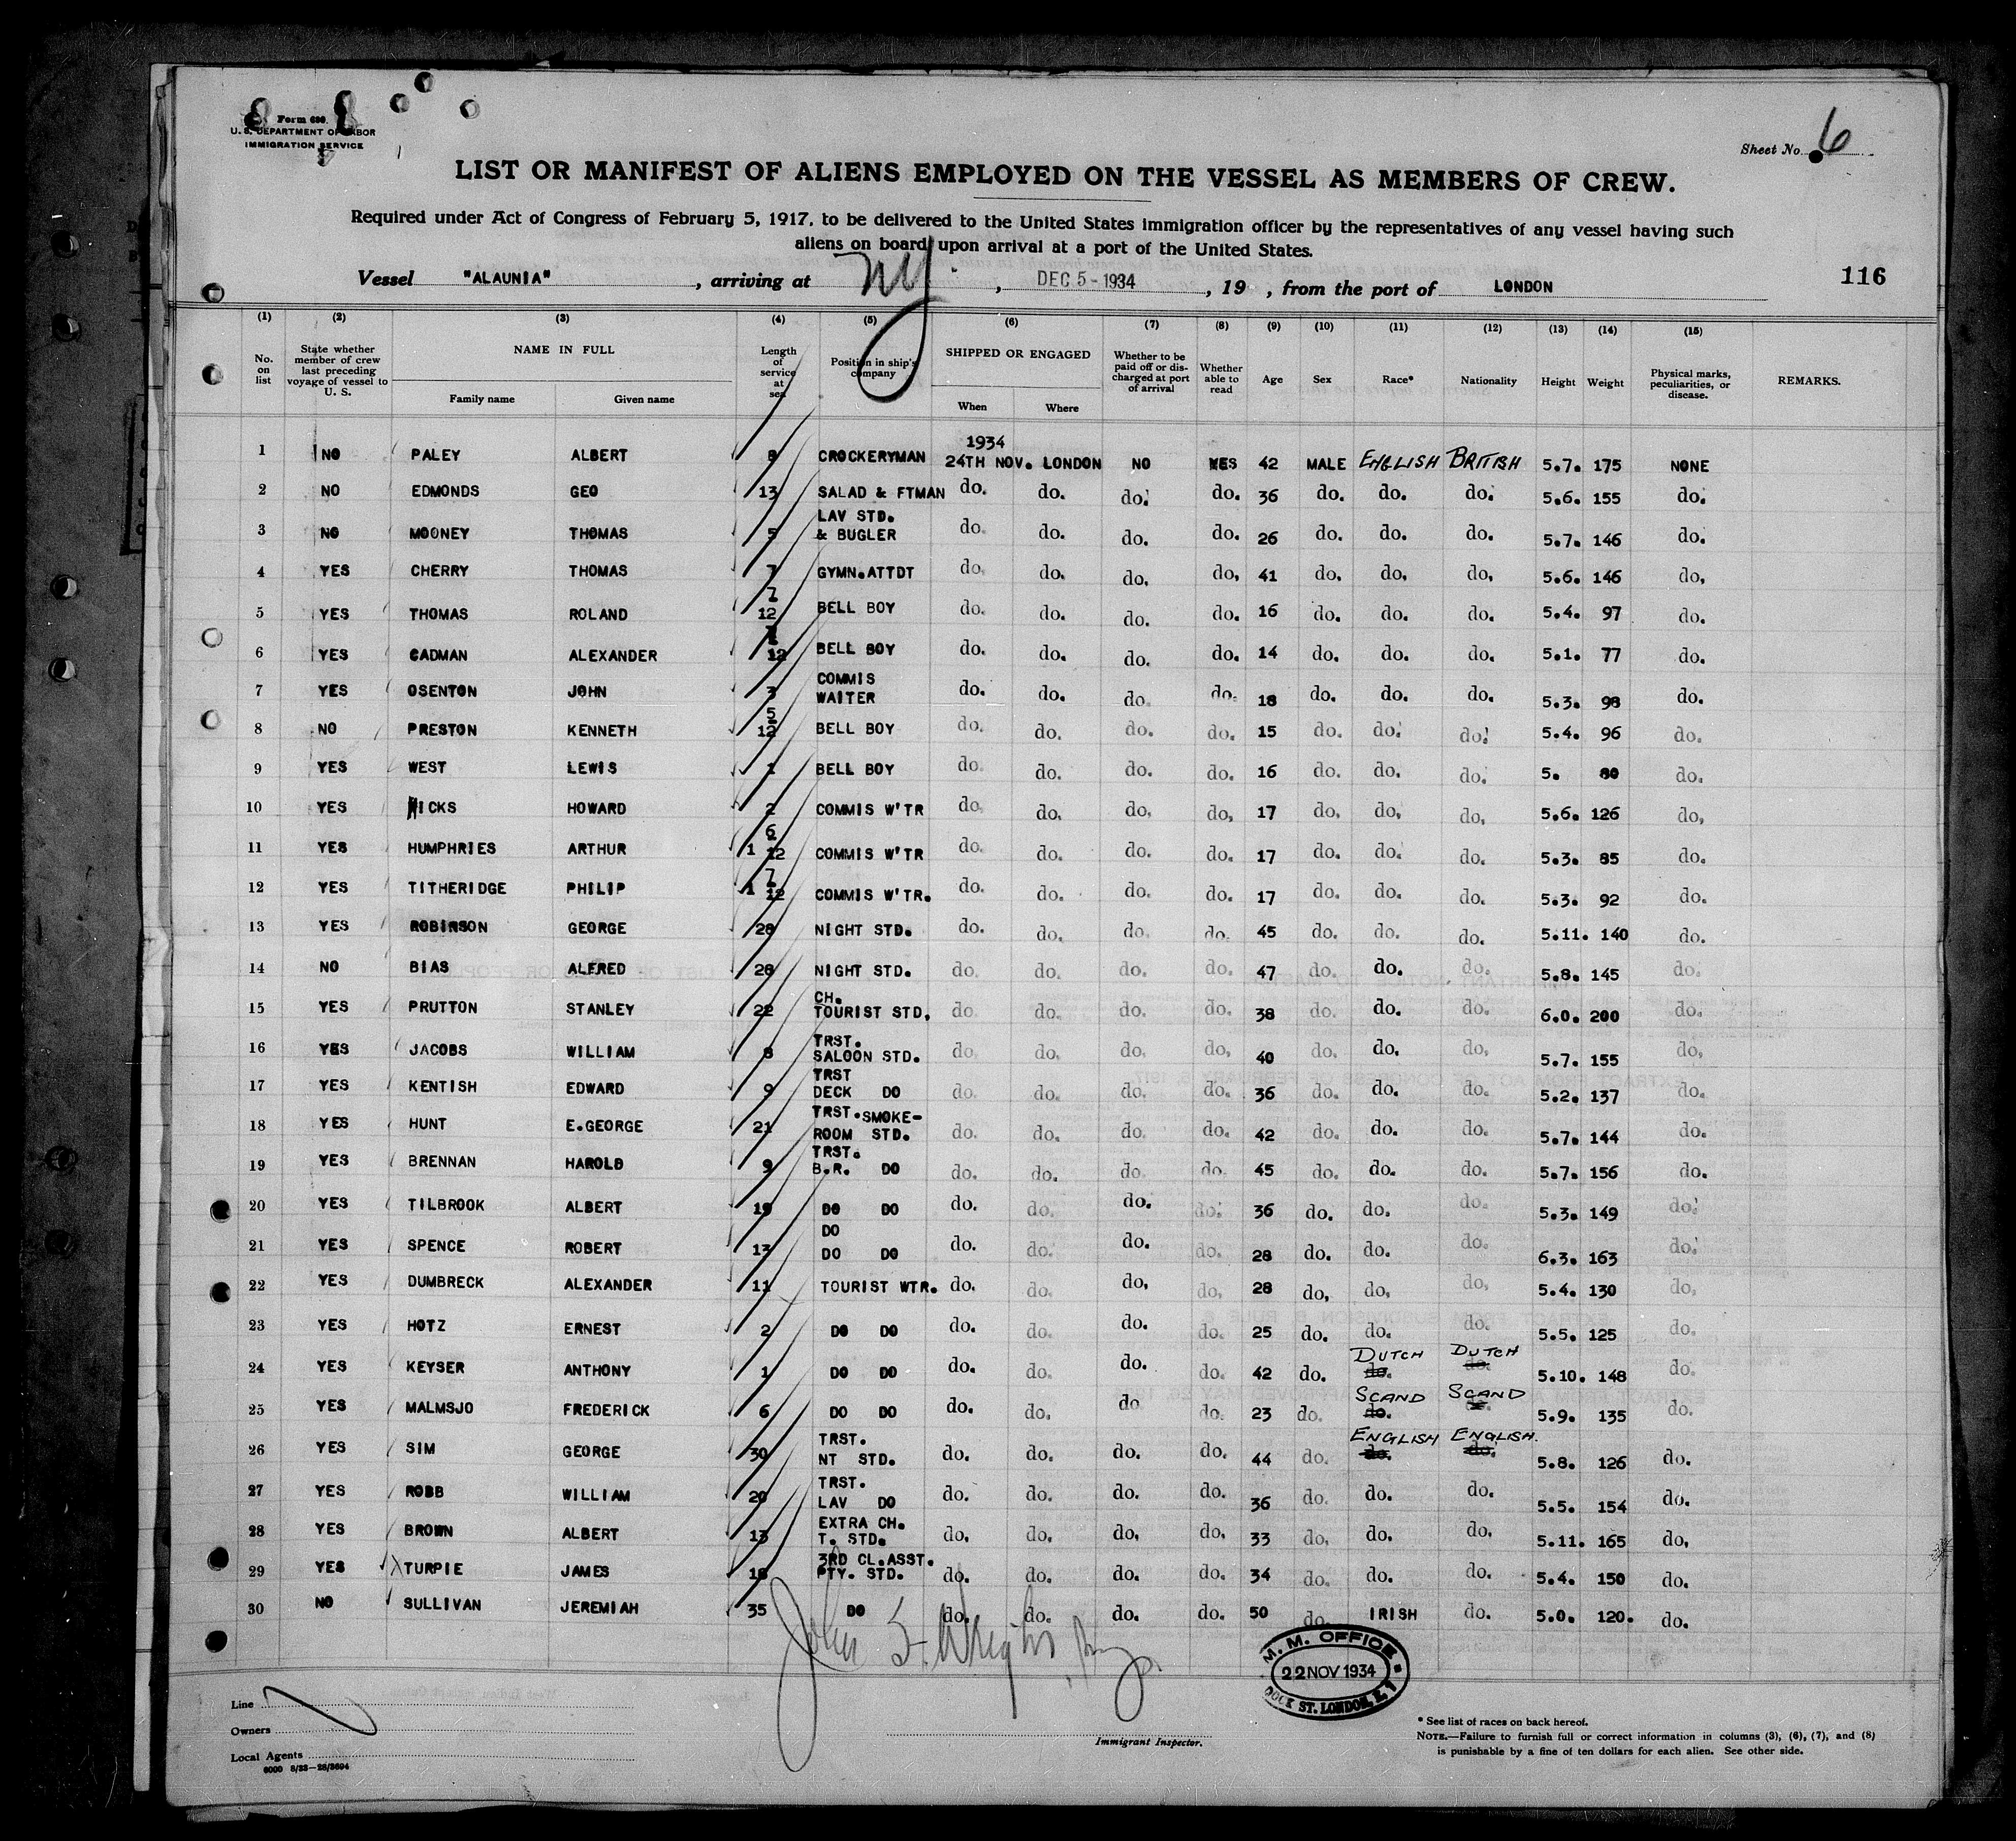 Form 680
U. S. DEPARTMENT OF LABOR
IMMIGRATION SERVICE
Sheet No. 6
LIST OR MANIFEST OF ALIENS EMPLOYED ON THE VESSEL AS MEMBERS OF CREW.
Required under Act of Congress of February 5, 1917, to be delivered to the United States immigration officer by the representatives of any vessel having such
aliens on board upon arrival at a port of the United States.
Vessel "ALAUNIA", arriving at NY, DEC 5 - 1934, 19 , from the port of LONDON
116
(1) (2) (3) (4) (5) (6) (7) (8) (9) (10) (11) (12) (13) (14) (15)
No. on list State whether member of crew last preceding voyage of vessel to U. S. NAME IN FULL Family name Given name Length of service at sea Position in ship's company SHIPPED OR ENGAGED When Where Whether to be paid off or discharged at port of arrival Whether able to read Age Sex Race* Nationality Height Weight Physical marks, peculiarities, or disease. REMARKS.
1934
1 NO PALEY ALBERT 8 CROCKERYMAN 24TH NOV. LONDON NO YES 42 MALE ENGLISH BRITISH 5.7. 175 NONE
2 NO EDMONDS GEO 13 SALAD & FTMAN do. do. do. do. 36 do. do. do. 5.6. 155 do.
3 NO MOONEY THOMAS 5 LAV STD. & BUGLER do. do. do. do. 26 do. do. do. 5.7. 146 do.
4 YES CHERRY THOMAS 7 GYMN.ATTDT do. do. do. do. 41 do. do. do. 5.6. 146 do.
5 YES THOMAS ROLAND 7/12 BELL BOY do. do. do. do. 16 do. do. do. 5.4. 97 do.
6 YES CADMAN ALEXANDER 12 BELL BOY do. do. do. do. 14 do. do. do. 5.1. 77 do.
7 YES OSENTON JOHN 3 COMMIS WAITER do. do. do. do. 18 do. do. do. 5.3. 98 do.
8 NO PRESTON KENNETH 5/12 BELL BOY do. do. do. do. 15 do. do. do. 5.4. 96 do.
9 YES WEST LEWIS 1 BELL BOY do. do. do. do. 16 do. do. do. 5. 80 do.
10 YES HICKS HOWARD 2 COMMIS W'TR do. do. do. do. 17 do. do. do. 5.6. 126 do.
11 YES HUMPHRIES ARTHUR 1 6/12 COMMIS W'TR do. do. do. do. 17 do. do. do. 5.3. 85 do.
12 YES TITHERIDGE PHILIP 1 7/12 COMMIS W'TR. do. do. do. do. 17 do. do. do. 5.3. 92 do.
13 YES ROBINSON GEORGE 28 NIGHT STD. do. do. do. do. 45 do. do. do. 5.11. 140 do.
14 NO BIAS ALFRED 26 NIGHT STD. do. do. do. do. 47 do. do. do. 5.8. 145 do.
15 YES PRUTTON STANLEY 22 CH. TOURIST STD. do. do. do. do. 38 do. do. do. 6.0. 200 do.
16 YES JACOBS WILLIAM 8 TRST. SALOON STD. do. do. do. do. 40 do. do. do. 5.7. 155 do.
17 YES KENTISH EDWARD 9 TRST DECK DO do. do. do. do. 36 do. do. do. 5.2. 137 do.
18 YES HUNT E.GEORGE 21 TRST.SMOKE- ROOM STD. do. do. do. do. 42 do. do. do. 5.7. 144 do.
19 YES BRENNAN HAROLD 9 TRST. B.R. DO do. do. do. do. 45 do. do. do. 5.7. 156 do.
20 YES TILBROOK ALBERT 19 DO DO do. do. do. do. 36 do. do. do. 5.3. 149 do.
21 YES SPENCE ROBERT 13 DO DO DO do. do. do. do. 28 do. do. do. 6.3. 163 do.
22 YES DUMBRECK ALEXANDER 11 TOURIST WTR. do. do. do. do. 28 do. do. do. 5.4. 130 do.
23 YES HOTZ ERNEST 2 DO DO do. do. do. do. 25 do. do. do. 5.5. 125 do.
24 YES KEYSER ANTHONY 1 DO DO do. do. do. do. 42 do. DUTCH do. DUTCH do. 5.10. 148 do.
25 YES MALMSJO FREDERICK 6 DO DO do. do. do do. 23 do. SCAND do. SCAND do. 5.9. 135 do.
26 YES SIM GEORGE 30 TRST. NT STD. do. do. do. do. 44 do. ENGLISH do. ENGLISH. do. 5.8. 126 do.
27 YES ROBB WILLIAM 20 TRST. LAV DO do. do. do. do. 36 do. do. do. 5.5. 154 do.
28 YES BROWN ALBERT 13 EXTRA CH. T. STD. do. do. do. do. 33 do. do. do. 5.11. 165 do.
29 YES TURPIE JAMES 18 3RD CL.ASST. PTY. STD. do. do. do. do. 34 do. do. do. 5.4. 150 do.
30 NO SULLIVAN JEREMIAH 35 DO do. do. do. do. 50 do. IRISH do. 5.0. 120. do.
John S. Wright
M. M. OFFICE
22 NOV 1934
DOCK ST. LONDON, E.1
Line
Owners
Local Agents
6000 8/33—28/3694
Immigrant Inspector.
* See list of races on back hereof.
NOTE.—Failure to furnish full or correct information in columns (3), (6), (7), and (8)
is punishable by a fine of ten dollars for each alien. See other side.